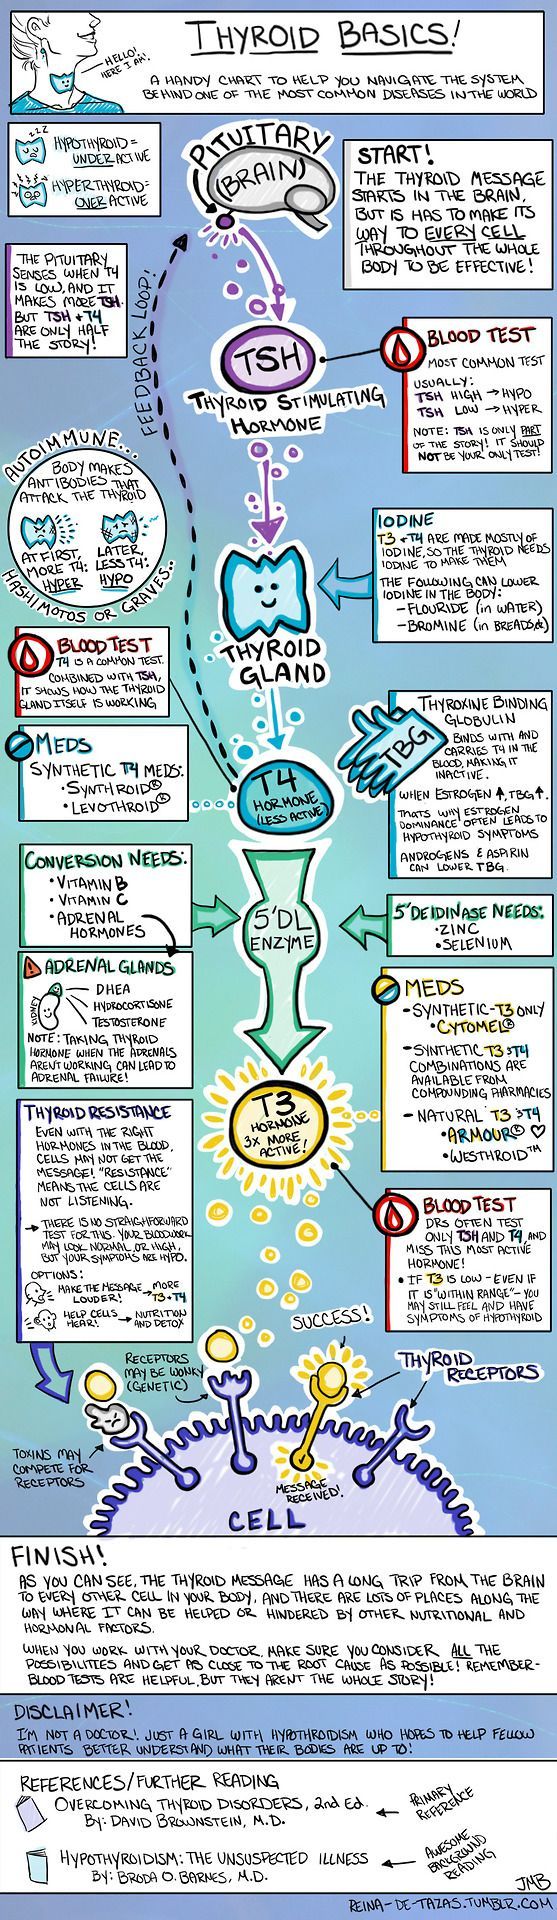 HELLO!
HERE I AM!
THYROID BASICS!
A HANDY CHART TO HELP YOU NAVIGATE THE SYSTEM
BEHIND ONE OF THE MOST COMMON DISEASES IN THE WORLD
ZZZ
HYPOTHYROID =
UNDER ACTIVE
HYPERTHYROID =
OVER ACTIVE
PITUITARY
(BRAIN)
START!
THE THYROID MESSAGE
STARTS IN THE BRAIN,
BUT IS HAS TO MAKE ITS
WAY TO EVERY CELL
THROUGHOUT THE WHOLE
BODY TO BE EFFECTIVE!
THE PITUITARY
SENSES WHEN T4
IS LOW, AND IT
MAKES MORE TSH.
BUT TSH + T4
ARE ONLY HALF
THE STORY!
FEEDBACK LOOP!
TSH
THYROID STIMULATING
HORMONE
BLOOD TEST
MOST COMMON TEST
USUALLY:
TSH HIGH → HYPO
TSH LOW → HYPER
NOTE: TSH IS ONLY PART
OF THE STORY! IT SHOULD
NOT BE YOUR ONLY TEST!
AUTOIMMUNE...
BODY MAKES
ANTIBODIES THAT
ATTACK THE THYROID
AT FIRST,
MORE T4:
HYPER
LATER,
LESS T4:
HYPO
HASHIMOTOS OR GRAVES..
IODINE
T3 + T4 ARE MADE MOSTLY OF
IODINE, SO THE THYROID NEEDS
IODINE TO MAKE THEM
THE FOLLOWING CAN LOWER
IODINE IN THE BODY:
- FLOURIDE (IN WATER)
- BROMINE (IN BREADS,&)
THYROID
GLAND
BLOOD TEST
T4 IS A COMMON TEST.
COMBINED WITH TSH,
IT SHOWS HOW THE THYROID
GLAND ITSELF IS WORKING
MEDS
SYNTHETIC T4 MEDS:
• SYNTHROID®
• LEVOTHROID®
T4
HORMONE
(LESS ACTIVE)
TBG
THYROXINE BINDING
GLOBULIN
BINDS WITH AND
CARRIES T4 IN THE
BLOOD, MAKING IT
INACTIVE.
WHEN ESTROGEN ↑, TBG ↑.
THATS WHY ESTROGEN
DOMINANCE OFTEN LEADS TO
HYPOTHYROID SYMPTOMS
ANDROGENS & ASPIRIN
CAN LOWER TBG.
CONVERSION NEEDS:
• VITAMIN B
• VITAMIN C
• ADRENAL
HORMONES
5'DL
ENZYME
5'DEIDINASE NEEDS:
• ZINC
• SELENIUM
! ADRENAL GLANDS
KIDNEY
DHEA
HYDROCORTISONE
TESTOSTERONE
NOTE: TAKING THYROID
HORMONE WHEN THE ADRENALS
ARENT WORKING CAN LEAD TO
ADRENAL FAILURE!
MEDS
- SYNTHETIC - T3 ONLY
• CYTOMEL®
- SYNTHETIC T3 & T4
COMBINATIONS ARE
AVAILABLE FROM
COMPOUNDING PHARMACIES
- NATURAL T3 & T4
• ARMOUR® ♡
• WESTHROID™
T3
HORMONE
3X MORE
ACTIVE!
THYROID RESISTANCE
EVEN WITH THE RIGHT
HORMONES IN THE BLOOD,
CELLS MAY NOT GET THE
MESSAGE! "RESISTANCE"
MEANS THE CELLS ARE
NOT LISTENING.
→ THERE IS NO STRAIGHTFORWARD
TEST FOR THIS. YOUR BLOODWORK
MAY LOOK NORMAL, OR HIGH,
BUT YOUR SYMPTOMS ARE HYPO.
OPTIONS:
MAKE THE MESSAGE → MORE
LOUDER! T3 + T4
HELP CELLS → NUTRITION
HEAR! AND DETOX
BLOOD TEST
DRS OFTEN TEST
ONLY TSH AND T4, AND
MISS THIS MOST ACTIVE
HORMONE!
• IF T3 IS LOW - EVEN IF
IT IS "WITHIN RANGE" - YOU
MAY STILL FEEL AND HAVE
SYMPTOMS OF HYPOTHYROID
SUCCESS!
RECEPTORS
MAY BE WONKY
(GENETIC)
THYROID
RECEPTORS
TOXINS MAY
COMPETE FOR
RECEPTORS
MESSAGE
RECEIVED!
CELL
FINISH!
AS YOU CAN SEE, THE THYROID MESSAGE HAS A LONG TRIP FROM THE BRAIN
TO EVERY OTHER CELL IN YOUR BODY, AND THERE ARE LOTS OF PLACES ALONG THE
WAY WHERE IT CAN BE HELPED OR HINDERED BY OTHER NUTRITIONAL AND
HORMONAL FACTORS.
WHEN YOU WORK WITH YOUR DOCTOR, MAKE SURE YOU CONSIDER ALL THE
POSSIBILITIES AND GET AS CLOSE TO THE ROOT CAUSE AS POSSIBLE! REMEMBER-
BLOOD TESTS ARE HELPFUL, BUT THEY ARENT THE WHOLE STORY!
DISCLAIMER!
I'M NOT A DOCTOR! JUST A GIRL WITH HYPOTHROIDISM WHO HOPES TO HELP FELLOW
PATIENTS BETTER UNDERSTAND WHAT THEIR BODIES ARE UP TO!
REFERENCES/FURTHER READING
OVERCOMING THYROID DISORDERS, 2nd Ed.
BY: DAVID BROWNSTEIN, M.D.
PRIMARY
REFERENCE
HYPOTHYROIDISM: THE UNSUSPECTED ILLNESS
BY: BRODA O. BARNES, M.D.
AWESOME
BACKGROUND
READING
JMB
REINA-DE-TAZAS.TUMBLR.COM